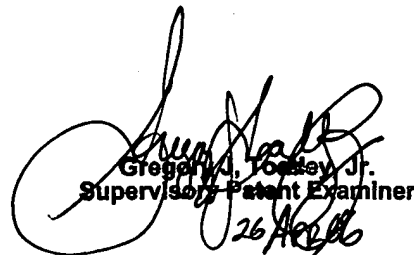 Gregory J. Toatley, Jr.
Supervisory Patent Examiner
26 Apr 06